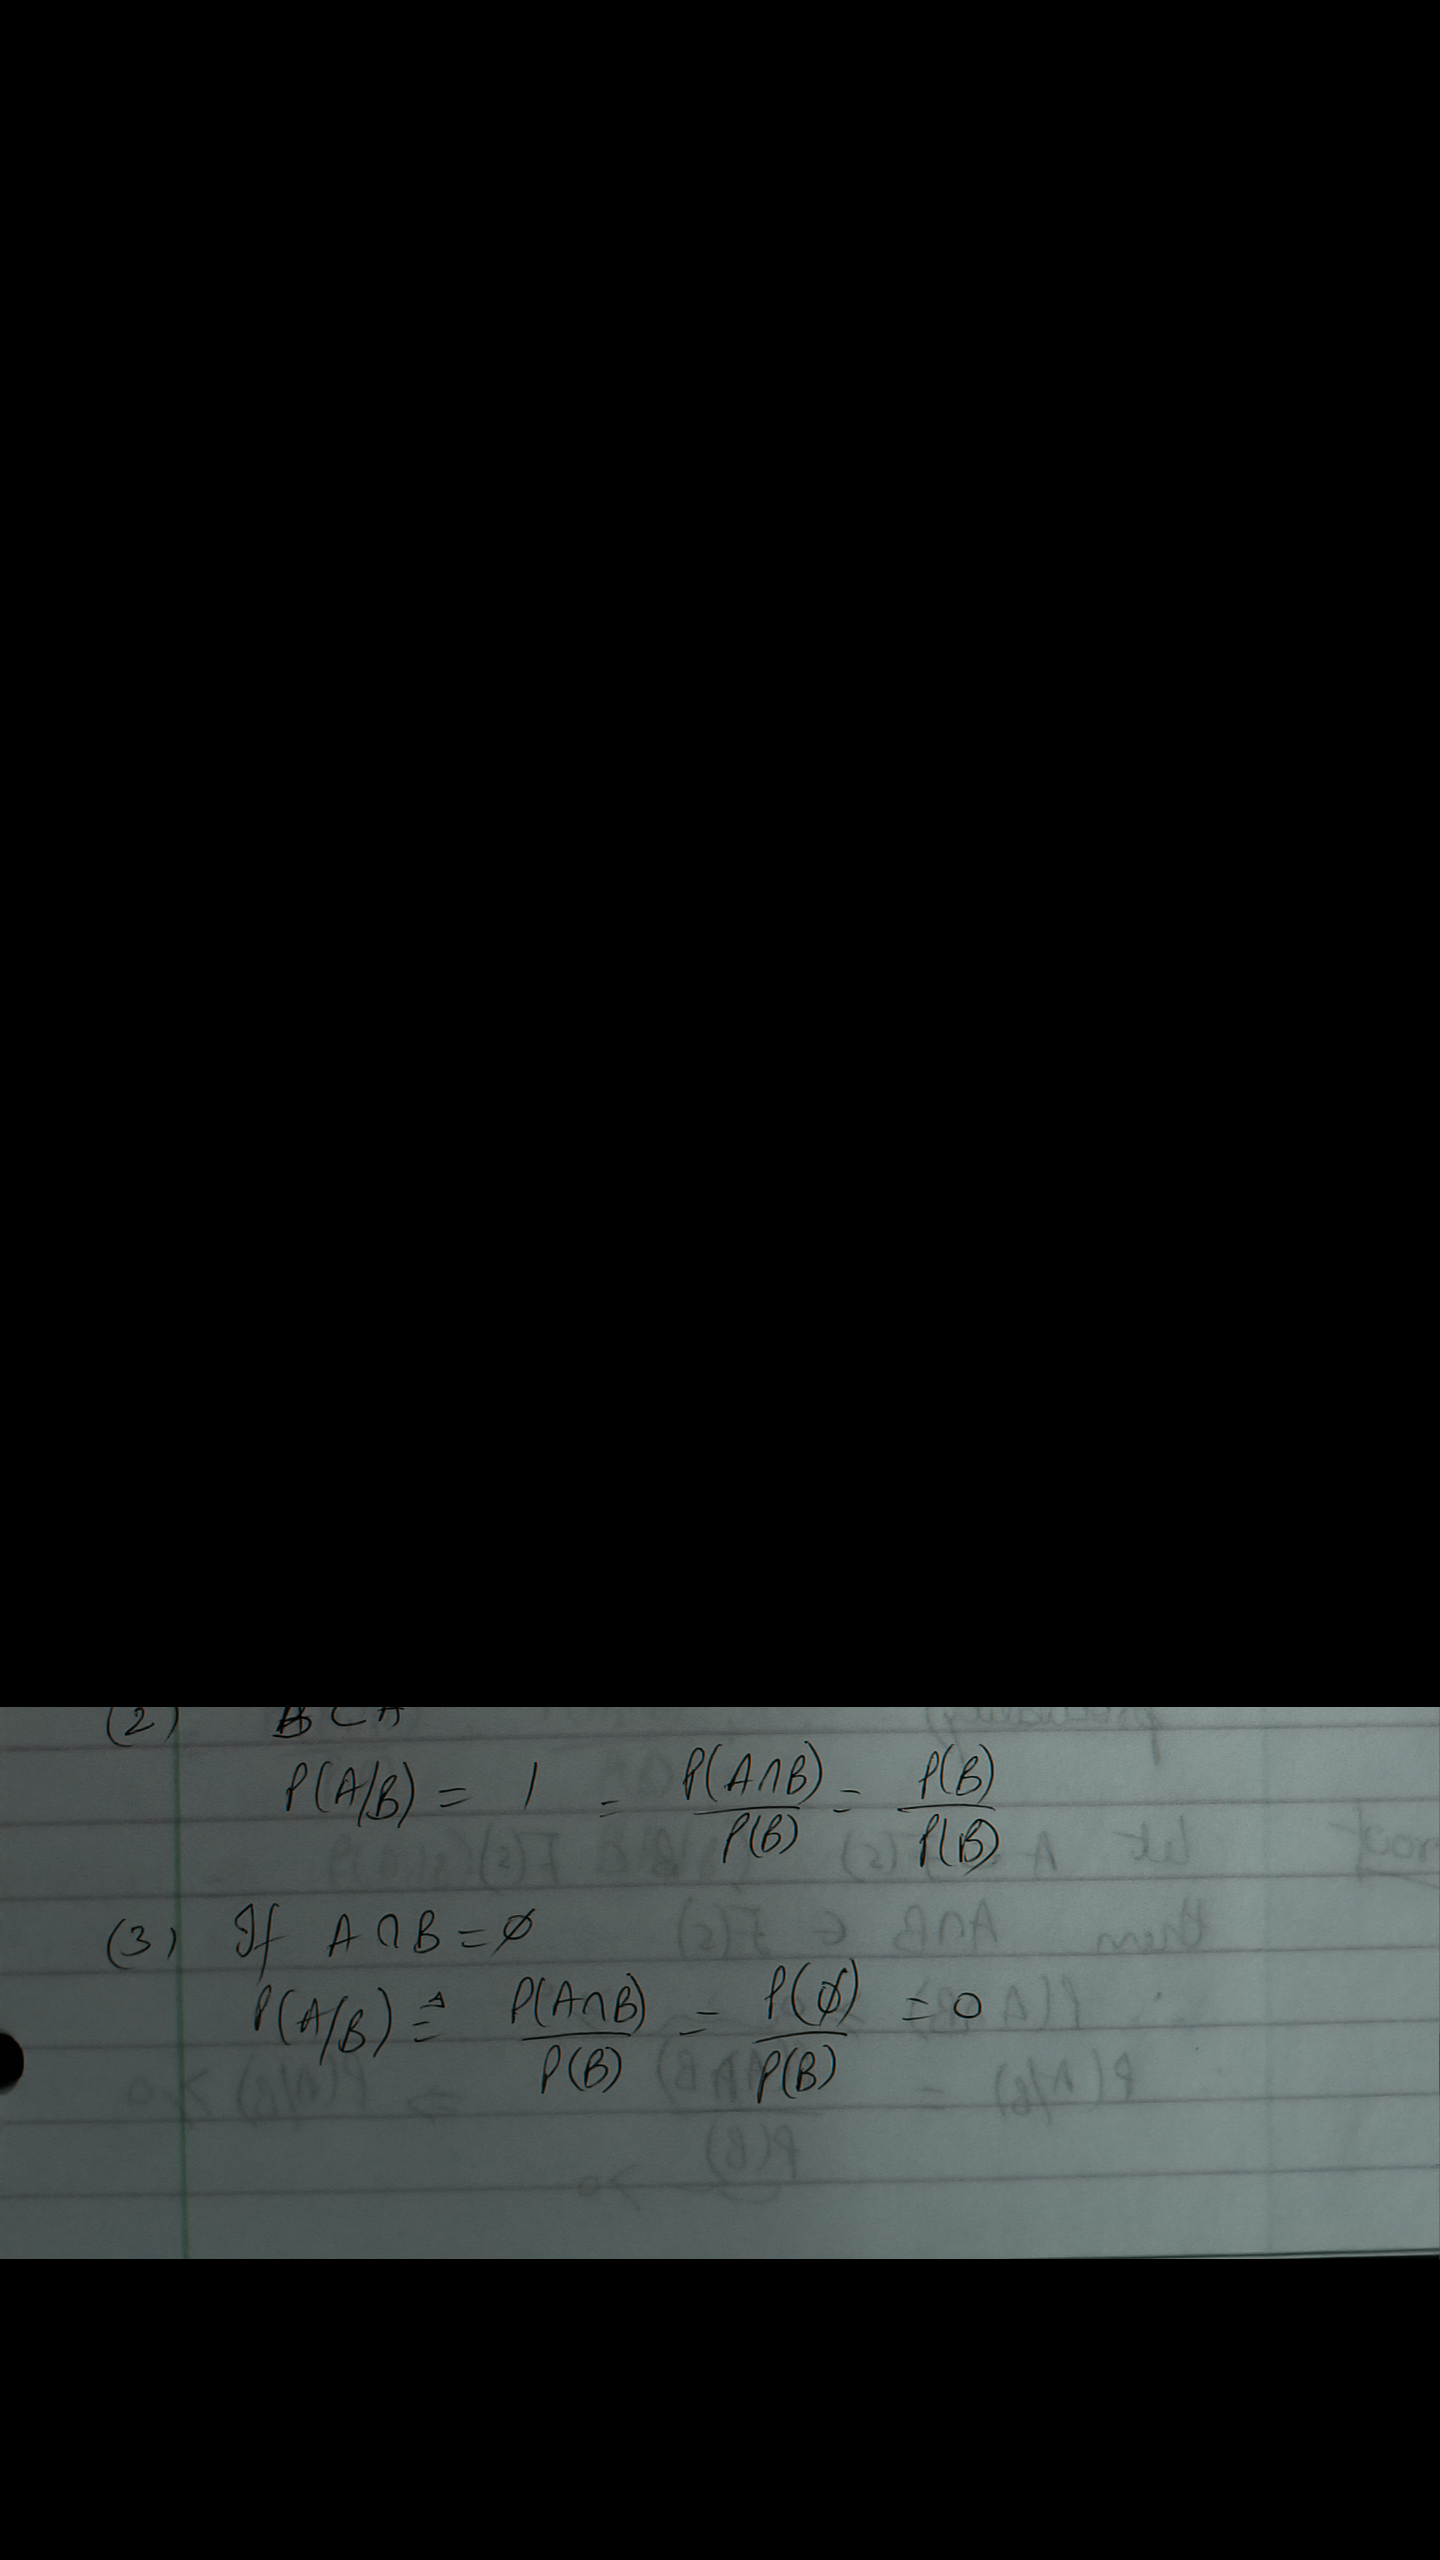 (2) B ⊂ A
P(A/B) = 1 = P(A∩B)/P(B) = P(B)/P(B)
(3) If A ∩ B = ∅
P(A/B) = P(A∩B)/P(B) = P(∅)/P(B) = 0